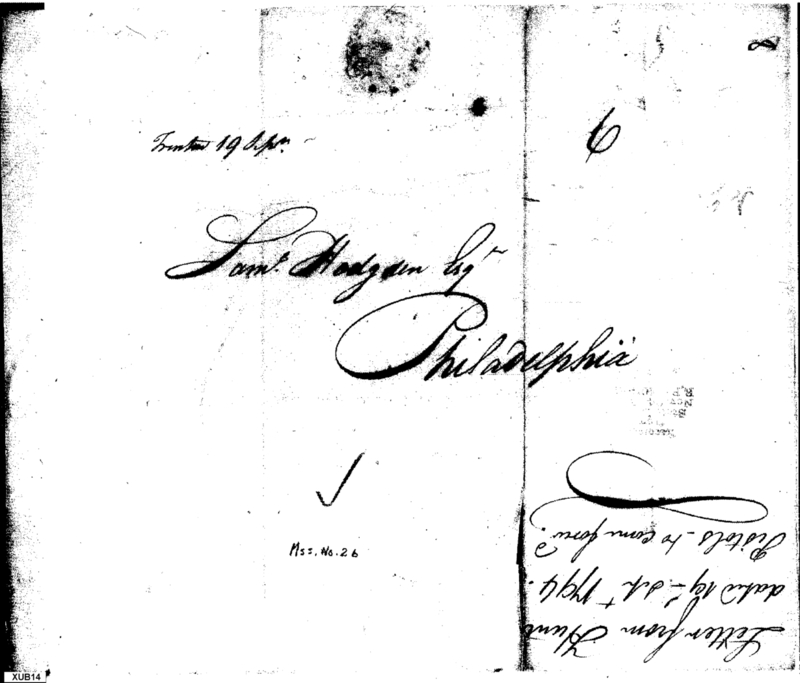 8
6
Trenton 19 Sepr.
Saml. Hodgden Esqr
Philadelphia
Mss. No. 26
Letter from Hunt
dated 19th Sept 1794.
Pistols to come forwd.
XUB14